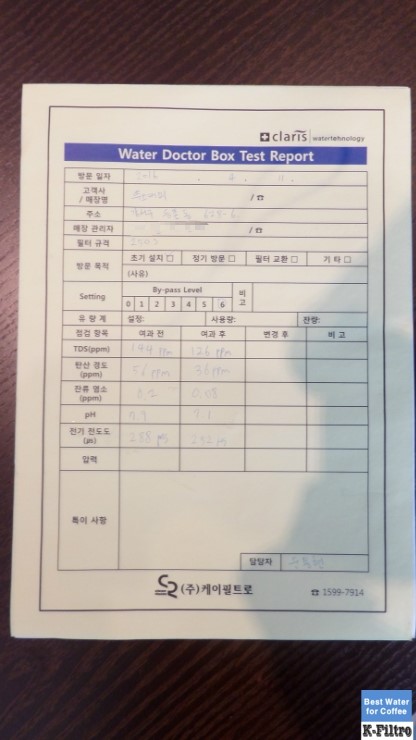 claris watertehnology
Water Doctor Box Test Report
방문 일자 2016 . 4 . 11 .
고객사 / 매장명 / ☎
주소
매장 관리자 / ☎
필터 규격
방문 목적 초기 설치 □ 정기 방문 □ 필터 교환 □ 기 타 □
(사유)
Setting By-pass Level 비고
0 1 2 3 4 5 6
유 량 계 설정: 사용량: 잔량:
점검 항목 여과 전 여과 후 변경 후 비 고
TDS(ppm) 144 ppm 126 ppm
탄산 경도 (ppm) 56 ppm 36 ppm
잔류 염소 (ppm) 0.2 0.08
pH 7.1
전기 전도도 (㎲) 288 ㎲ 252 ㎲
압력
특이 사항
담당자
(주)케이필트로 ☎ 1599-7914
Best Water
for Coffee
K-Filtro